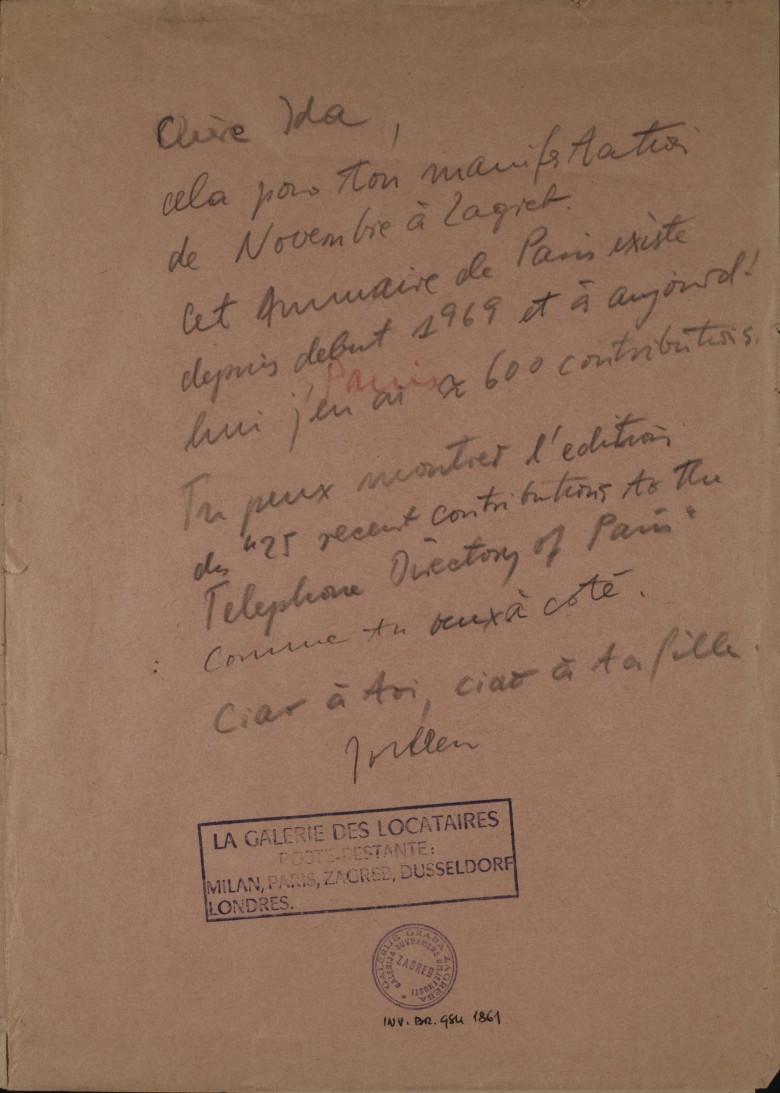 Chère Ida,
cela pour ton manifestation
de Novembre à Zagreb.
Cet Annuaire de Paris existe
depuis debut 1969 et à aujourd'
Paris
hui j'en ai ≈ 600 contributions.
Tu peux montrer l'edition
des "25 recent contributions to the
Telephone Directory of Paris"
comme tu veux à coté.
Ciao à toi, ciao à ta fille.
LA GALERIE DES LOCATAIRES
POSTE-RESTANTE:
MILAN, PARIS, ZAGREB, DUSSELDORF
LONDRES.
GALERIJE GRADA ZAGREBA
GALERIJA SUVREMENE UMJETNOSTI
ZAGREB
INV. BR. GSU 1861